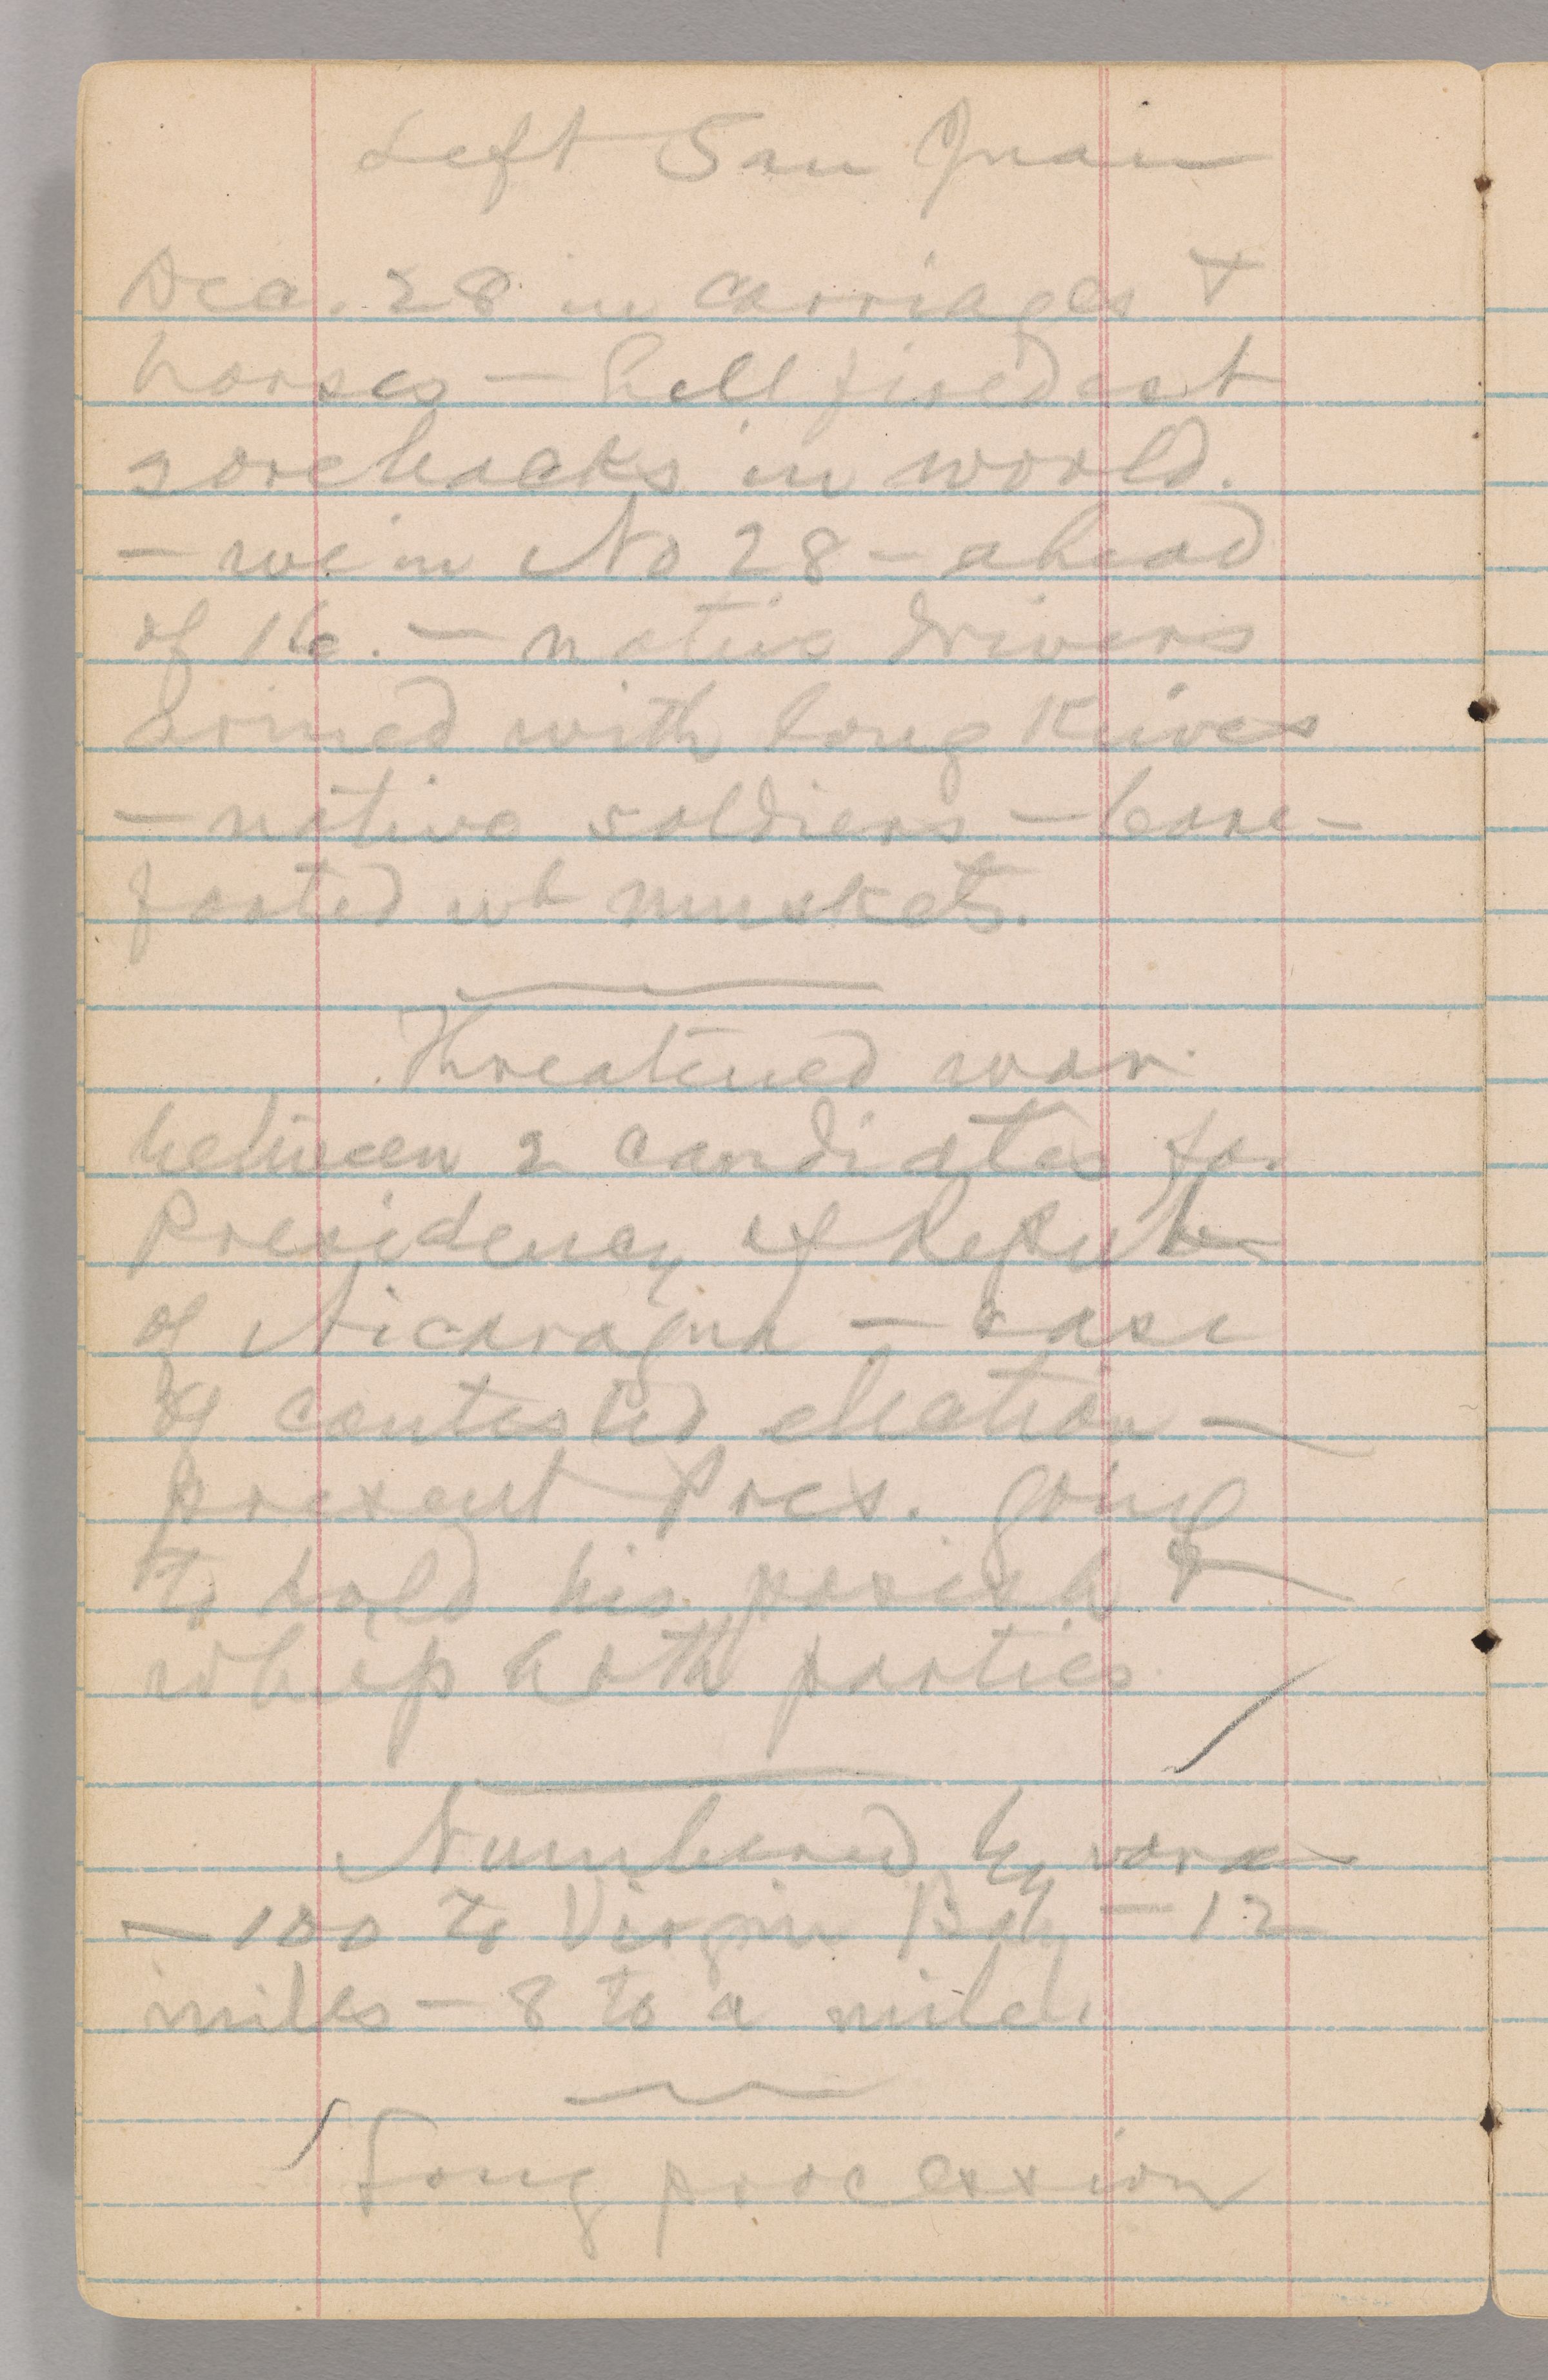 Left San Juan
Dec. 28 in carriages &
horses — hell firedest
sorebacks in world.
— we in No 28 — ahead
of 16. — native drivers
armed with long knives
— native soldiers — bare-
footed wh muskets.
Threatened war
between 2 candidates for
Presidency of Repub
of Nicaragua — case
of contested election —
present Pres. going
to hold his &
whip both parties
Numbered by vara
— 100 to Virgin Bay — 12
miles — 8 to a mile.
Long procession